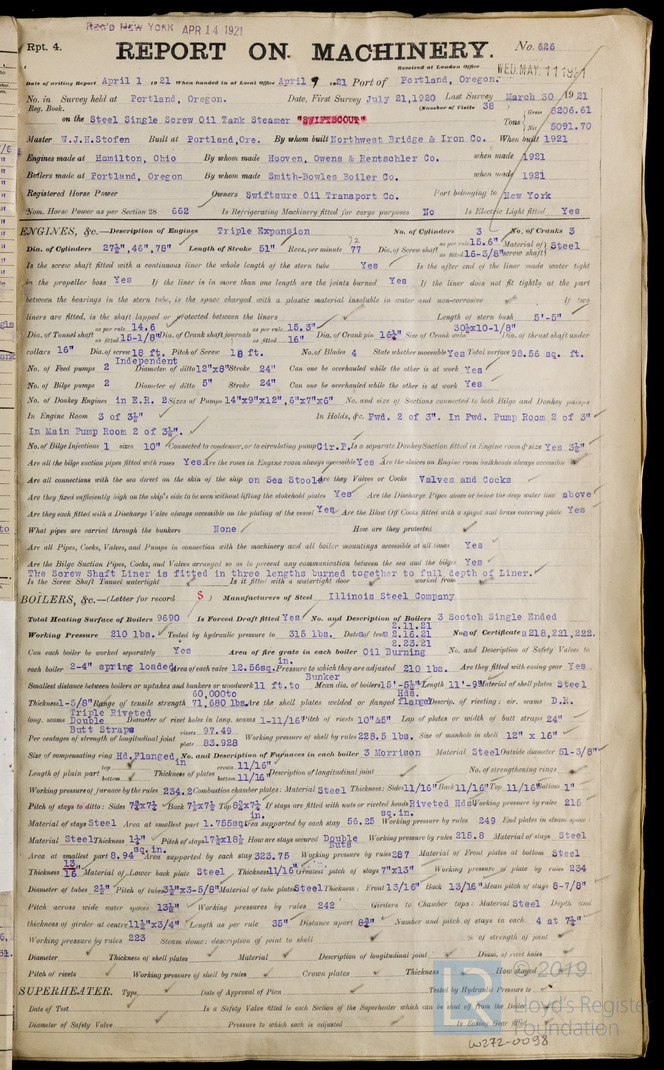 REC'D NEW YORK APR 14 1921
Rpt. 4.
REPORT ON MACHINERY.
No. 626
Received at London Office WED. MAY. 11 1921
Date of writing Report April 1 1921 When handed in at Local Office April 9 1921 Port of Portland, Oregon.
No. in Survey held at Portland, Oregon. Date, First Survey July 21,1920 Last Survey March 30 1921
Reg. Book. (Number of Visits 38
on the Steel Single Screw Oil Tank Steamer "SWIFTSCOUT" Tons Gross 8206.61 Net 5091.70
Master W.J.H.Stofen Built at Portland,Ore. By whom built Northwest Bridge & Iron Co. When built 1921
Engines made at Hamilton, Ohio By whom made Hooven, Owens & Rentschler Co. when made 1921
Boilers made at Portland, Oregon By whom made Smith-Bowles Boiler Co. when made 1921
Registered Horse Power Owners Swiftsure Oil Transport Co. Port belonging to New York
Nom. Horse Power as per Section 28 662 Is Refrigerating Machinery fitted for cargo purposes No Is Electric Light fitted Yes
ENGINES, &c.—Description of Engines Triple Expansion No. of Cylinders 3 No. of Cranks 3
Dia. of Cylinders 27½",46",78" Length of Stroke 51" Revs. per minute 72 77 Dia. of Screw shaft as per rule 15.6" as fitted 16-3/8" Material of screw shaft Steel
Is the screw shaft fitted with a continuous liner the whole length of the stern tube Yes Is the after end of the liner made water tight
in the propeller boss Yes If the liner is in more than one length are the joints burned Yes If the liner does not fit tightly at the part
between the bearings in the stern tube, is the space charged with a plastic material insoluble in water and non-corrosive If two
liners are fitted, is the shaft lapped or protected between the liners Length of stern bush 5'-5"
Dia. of Tunnel shaft as per rule 14.6 as fitted 15-1/8" Dia. of Crank shaft journals as per rule 15.3" as fitted 16" Dia. of Crank pin 16¼" Size of Crank webs 30½x10-1/8" Dia. of thrust shaft under
collars 16" Dia. of screw 18 ft. Pitch of Screw 18 ft. No. of Blades 4 State whether moveable Yes Total surface 98.56 sq. ft.
No. of Feed pumps 2 Independent Diameter of ditto 12"x8" Stroke 24" Can one be overhauled while the other is at work Yes
No. of Bilge pumps 2 Diameter of ditto 5" Stroke 24" Can one be overhauled while the other is at work Yes
No. of Donkey Engines in E.R. 2 Sizes of Pumps 14"x9"x12",6"x7"x6" No. and size of Suctions connected to both Bilge and Donkey pumps
In Engine Room 3 of 3½" In Holds, &c. Fwd. 2 of 3". In Fwd. Pump Room 2 of 3"
In Main Pump Room 2 of 3½".
No. of Bilge Injections 1 sizes 10" Connected to condenser, or to circulating pump Cir.P. Is a separate Donkey Suction fitted in Engine room & size Yes 3½"
Are all the bilge suction pipes fitted with roses Yes Are the roses in Engine room always accessible Yes Are the sluices on Engine room bulkheads always accessible
Are all connections with the sea direct on the skin of the ship on Sea Stools Are they Valves or Cocks Valves and Cocks
Are they fixed sufficiently high on the ship's side to be seen without lifting the stokehold plates Yes Are the Discharge Pipes above or below the deep water line above
Are they each fitted with a Discharge Valve always accessible on the plating of the vessel Yes Are the Blow Off Cocks fitted with a spigot and brass covering plate Yes
What pipes are carried through the bunkers None How are they protected
Are all Pipes, Cocks, Valves, and Pumps in connection with the machinery and all boiler mountings accessible at all times Yes
Are the Bilge Suction Pipes, Cocks, and Valves arranged so as to prevent any communication between the sea and the bilges Yes
The Screw Shaft Liner is fitted in three lengths burned together to full depth of Liner.
Is the Screw Shaft Tunnel watertight Is it fitted with a watertight door worked from
BOILERS, &c.—(Letter for record S ) Manufacturers of Steel Illinois Steel Company
Total Heating Surface of Boilers 9690 Is Forced Draft fitted Yes No. and Description of Boilers 3 Scotch Single Ended
Working Pressure 210 lbs. Tested by hydraulic pressure to 315 lbs. Date of test 2.11.21 2.16.21 2.23.21 No. of Certificates 218,221,222.
Can each boiler be worked separately Yes Area of fire grate in each boiler Oil Burning No. and Description of Safety Valves to
each boiler 2-4" spring loaded Area of each valve 12.56 sq. in. Pressure to which they are adjusted 210 lbs. Are they fitted with easing gear Yes
Smallest distance between boilers or uptakes and bunkers or woodwork 11 ft. to Bunker Mean dia. of boilers 15'-5½" Length 11'-9" Material of shell plates Steel
Thickness 1-5/8" Range of tensile strength 60,000 to 71,680 lbs. Are the shell plates welded or flanged Hds. flanged Descrip. of riveting: cir. seams D.R.
long. seams Triple Riveted Double Butt Straps Diameter of rivet holes in long. seams 1-11/16" Pitch of rivets 10"&5" Lap of plates or width of butt straps 24"
Per centages of strength of longitudinal joint rivets 97.49 plate 83.928 Working pressure of shell by rules 228.5 lbs. Size of manhole in shell 12" x 16"
Size of compensating ring Hd. Flanged in No. and Description of Furnaces in each boiler 3 Morrison Material Steel Outside diameter 51-3/8"
Length of plain part top bottom Thickness of plates crown 11/16" bottom 11/16" Description of longitudinal joint No. of strengthening rings
Working pressure of furnace by the rules 234.2 Combustion chamber plates: Material Steel Thickness: Sides 11/16" Back 11/16" Top 11/16" Bottom 1"
Pitch of stays to ditto: Sides 7¾x7½ Back 7½x7½ Top 8¾x7½ If stays are fitted with nuts or riveted heads Riveted Hds. Working pressure by rules 215
Material of stays Steel Area at smallest part 1.755 sq. in. Area supported by each stay 56.25 sq. in. Working pressure by rules 249 End plates in steam space:
Material Steel Thickness 1¼" Pitch of stays 17½x18½ How are stays secured Double Nuts Working pressure by rules 215.8 Material of stays Steel
Area at smallest part 8.94 sq. in. Area supported by each stay 323.75 Working pressure by rules 287 Material of Front plates at bottom Steel
Thickness 13/16" Material of Lower back plate Steel Thickness 11/16" Greatest pitch of stays 7"x13" Working pressure of plate by rules 234
Diameter of tubes 2½" Pitch of tubes 3½"x3-5/8" Material of tube plates Steel Thickness: Front 13/16" Back 13/16" Mean pitch of stays 8-7/8"
Pitch across wide water spaces 13½" Working pressures by rules 242 Girders to Chamber tops: Material Steel Depth and
thickness of girder at centre 11½"x3/4" Length as per rule 35" Distance apart 8¾" Number and pitch of stays in each 4 at 7½"
Working pressure by rules 223 Steam dome: description of joint to shell % of strength of joint
Diameter Thickness of shell plates Material Description of longitudinal joint Diam. of rivet holes
Pitch of rivets Working pressure of shell by rules Crown plates Thickness How stayed
SUPERHEATER. Type Date of Approval of Plan Tested by Hydraulic Pressure to
Date of Test Is a Safety Valve fitted to each Section of the Superheater which can be shut off from the Boiler
Diameter of Safety Valve Pressure to which each is adjusted Is Easing Gear fitted
© 2019
Lloyd's Register
Foundation
W272-0098